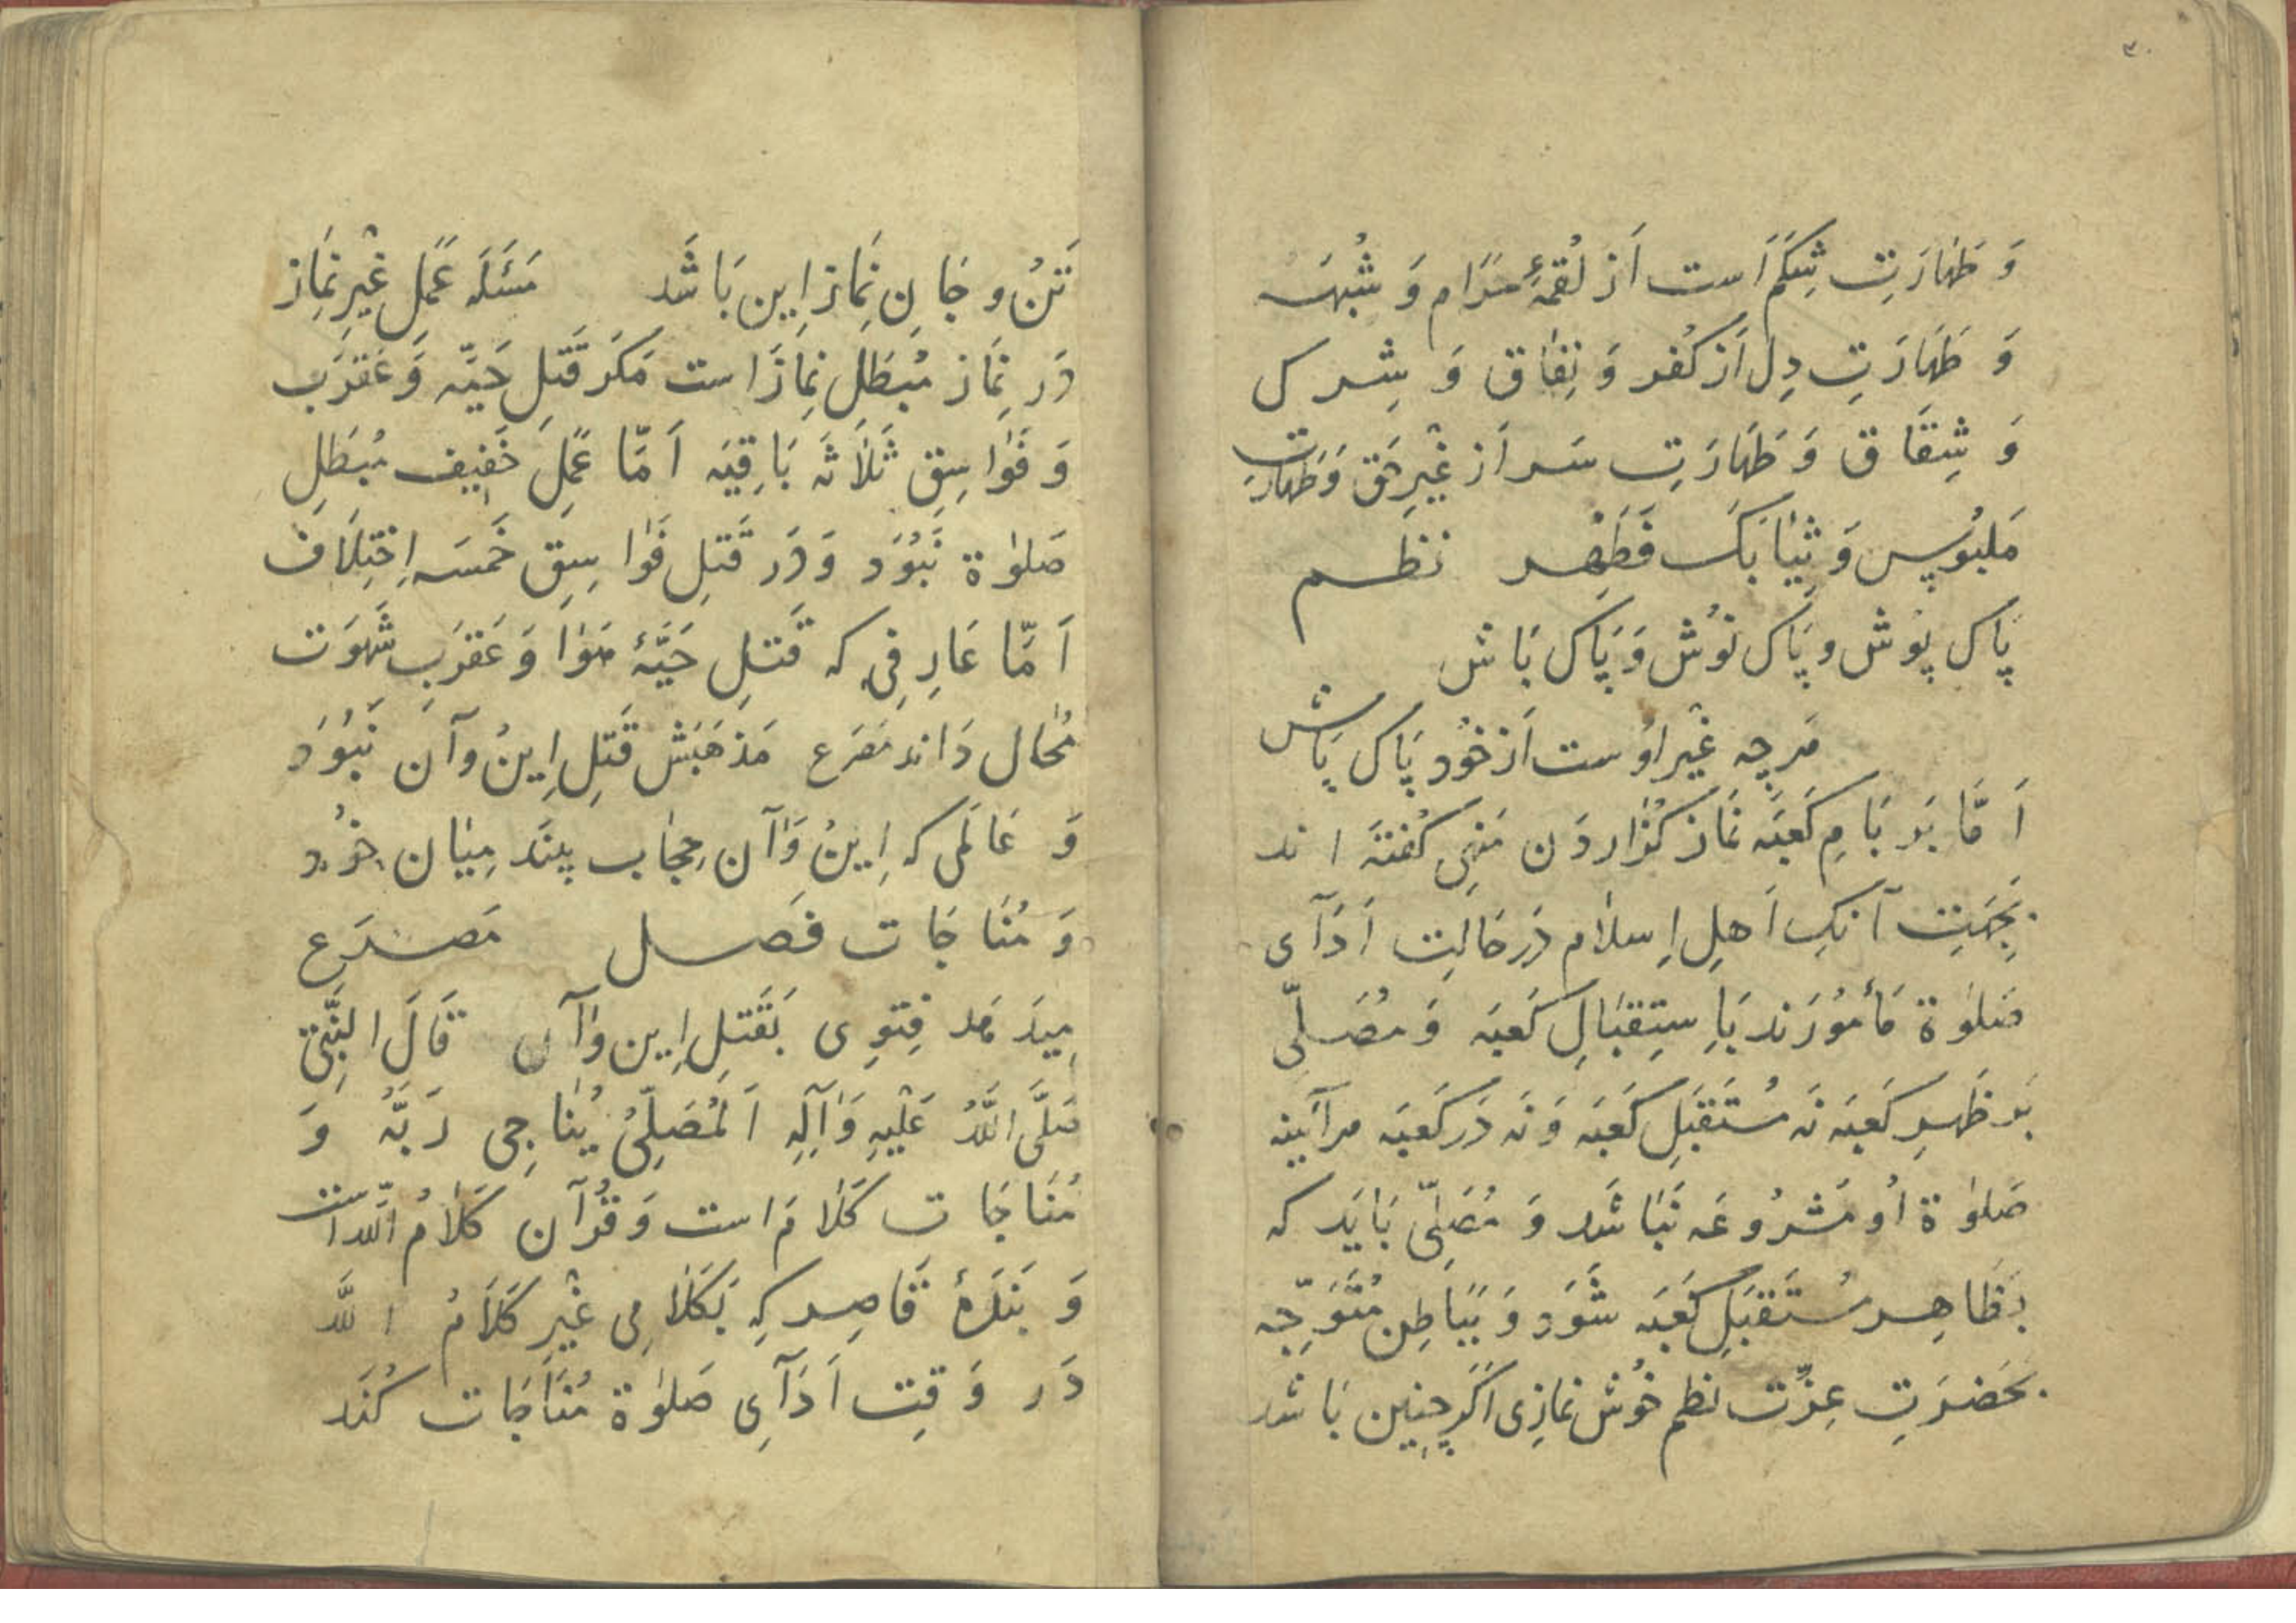 ۳۰
وَ طَهَارَتِ شِکَمْ اَست اَز لُقمَۀِ حَرَام وَ شُبهَه
وَ طَهَارَتِ دِل اَز کُفر وَ نِفَاق وَ شِرک
وَ شِقَاق وَ طَهَارَتِ سَر اَز غَیْرِ حَق وَ طَهَارَتِ
مَلبُوس وَ ثِیَابَکَ فَطَهِّر نظم
پَاک پوش و پَاک نُوش وَ پَاک بَاش
هَرچِه غَیْر اوُست اَز خُود پَاک بَاش
اَمَّا بَر بَامِ کَعبَه نَمَاز کُزَاردَن مَنهِی کُفتَه اند
بَجِهَتِ آنکِ اَهلِ اِسلَام دَر حَالَتِ اَدَآیِ
صَلوٰة مَأمُورَند بَاِستِقبَالِ کَعبَه وَ مُصَلِّی
بَر ظَهرِ کَعبَه نَه مُستَقبِلِ کَعبَه وَ نَه دَر کَعبَه هرآیینه
صَلوٰة اُو مَشرُوعَه نَبَاشَد وَ مُصَلِّی بَایَد که
بِظَاهِر مُستَقبِلِ کَعبَه شَوَد وَ بَبَاطِن مُتَوَجِّه
بَحَضرَتِ عِزَّت نظم خُوش نمازِی اَکَر چِنِین بَاشد
تَنُ و جَانِ نَمَاز اِین بَاشَد مَسَئَلَه عَمَلِ غَیْرِ نَمَاز
دَر نَمَاز مُبطَلِ نَمَاز اَست مَکَر قَتلِ حَیَّه وَ عَقرَب
وَ فَوَاسِقِ ثَلَاثَه بَاقِیَه اَمَّا عَمَلِ خَفِیف مُبطَلِ
صَلوٰة نَبُوَد وَ دَر قَتلِ فَوَاسِقِ خَمسَه اِختِلَاف
اَمَّا عَارِفِی که قَتلِ حَیَّۀِ هَوَا وَ عَقرَبِ شَهوَت
مُحَال دَاند مَصرَع مَذهَبَش قَتلِ اِینُ و آن نَبُوَد
وَ عَالَمِی که اِینُ وَآن حِجَاب بیند مِیَان خُود
وَ مُنَاجَات فَصل مَصرَع
مِیدَهَد فِتوِی بَقَتلِ اِین وآن قَالَ النَّبِیُّ
صَلَّی اللَّهُ عَلَیْهِ وَآلِهِ اَلمُصَلِّیُ یُنَاجِی رَبَّهُ وَ
مُنَاجَات کَلَام اَست وَ قُرآن کَلَامُ اللّه است
وَ بَندَۀِ قَاصِر کِه بَکَلَامِی غَیْرِ کَلَامُ اللَّه
دَر وَقتِ اَدَآیِ صَلوٰة مُنَاجَات کُنَد